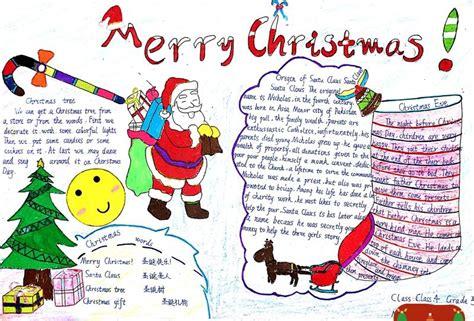 Merry Christmas!
Christmas tree
We can get a Christmas tree from
a store or from the woods. First we
decorate it with some colorful lights
Then we put some candies or some
cookies on it. At last we may dance
and sing around it on Christmas
Day.
Christmas words
Merry Christmas! 圣诞快乐!
Santa Claus 圣诞老人
Christmas tree 圣诞树
Christmas gift 圣诞礼物
Origin of Santa Claus Santa
Santa Claus The original
name is Nicholas, in the fourth century
was born in Asia Minor city of
full, the family wealth, parents are
enthusiastic Catholics, unfortunately,
parents died young Nicholas grew up, he gave
wealth of property all donations given to the
poor people himself a monk convent
to the Church a lifetime to serve the community
Nicholas was made a priest, but also was pro
moted to bishop. Among his life has done a lot
of charity work, he most likes to secretly
Santa Claus is his later alias
name because he was secretly giving
money to help the three girls story
Christmas Eve.
The night before Christ
mas Day children are
They put their stockings
at the end of the
their
Father Christmas
kind man. He comes
Christmas Eve. He lands
down the chimney
Class Class 4 Grade